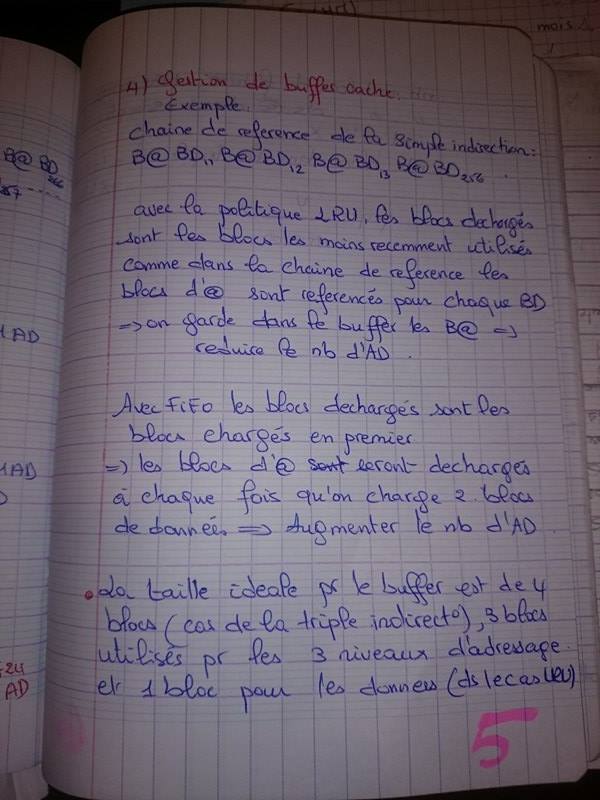 mois
4) Gestion de buffer cache.
Exemple.
chaine de reference de la simple indirection:
B@ BD11 B@ BD12 B@ BD13 B@ BD256 .
avec la politique LRU, les blocs dechargés
sont les blocs les moins recemment utilisés
comme dans la chaine de reference les
blocs d'@ sont referencés pour chaque BD
=> on garde dans le buffer les B@ =>
reduire le nb d'AD .
Avec FiFo les blocs dechargés sont les
blocs chargés en premier
=> les blocs d'@ seront dechargés
à chaque fois qu'on charge 2 blocs
de données => Augmenter le nb d'AD
• La taille ideale pr le buffer est de 4
blocs (cas de la triple indirect°), 3 blocs
utilisés pr les 3 niveaux d'adressage
et 1 bloc pour les donners (ds le cas LRU)
5
B@ BD
AD
AD
AD